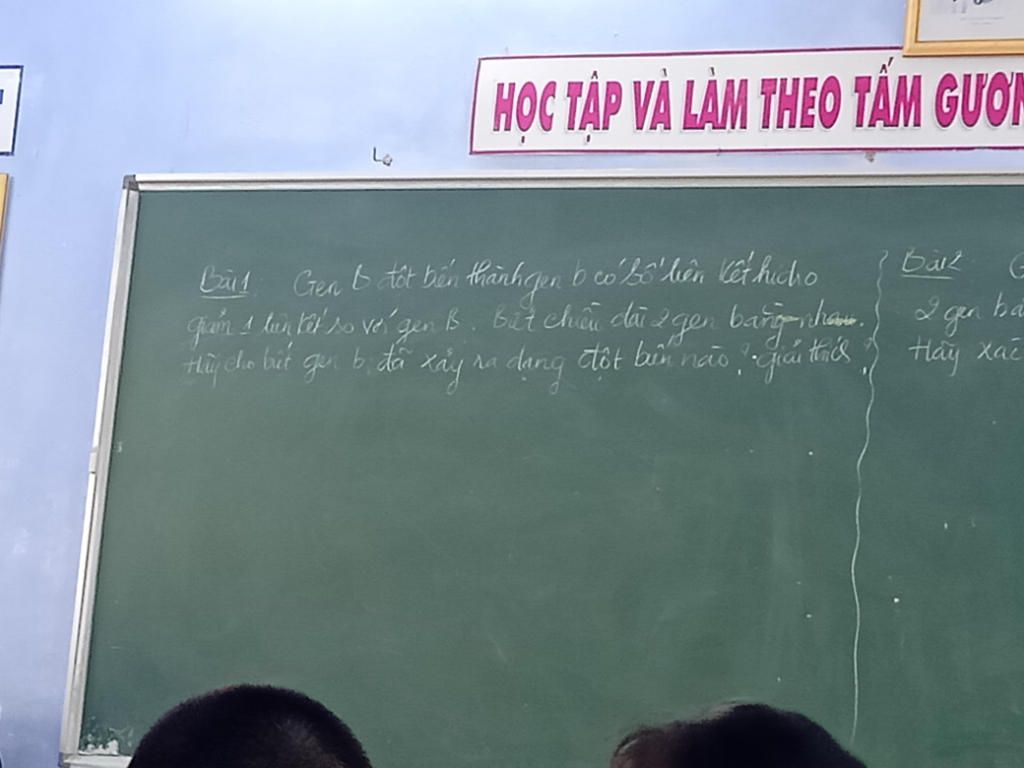 HỌC TẬP VÀ LÀM THEO TẤM GƯƠN
Bài 1: Gen B đột biến thành gen b có số liên kết hidro
giảm 1 liên kết so với gen B. Biết chiều dài 2 gen bằng nhau.
Hãy cho biết gen b đã xảy ra dạng đột biến nào? giải thích?
Bài 2 G
2 gen bằ
Hãy xác